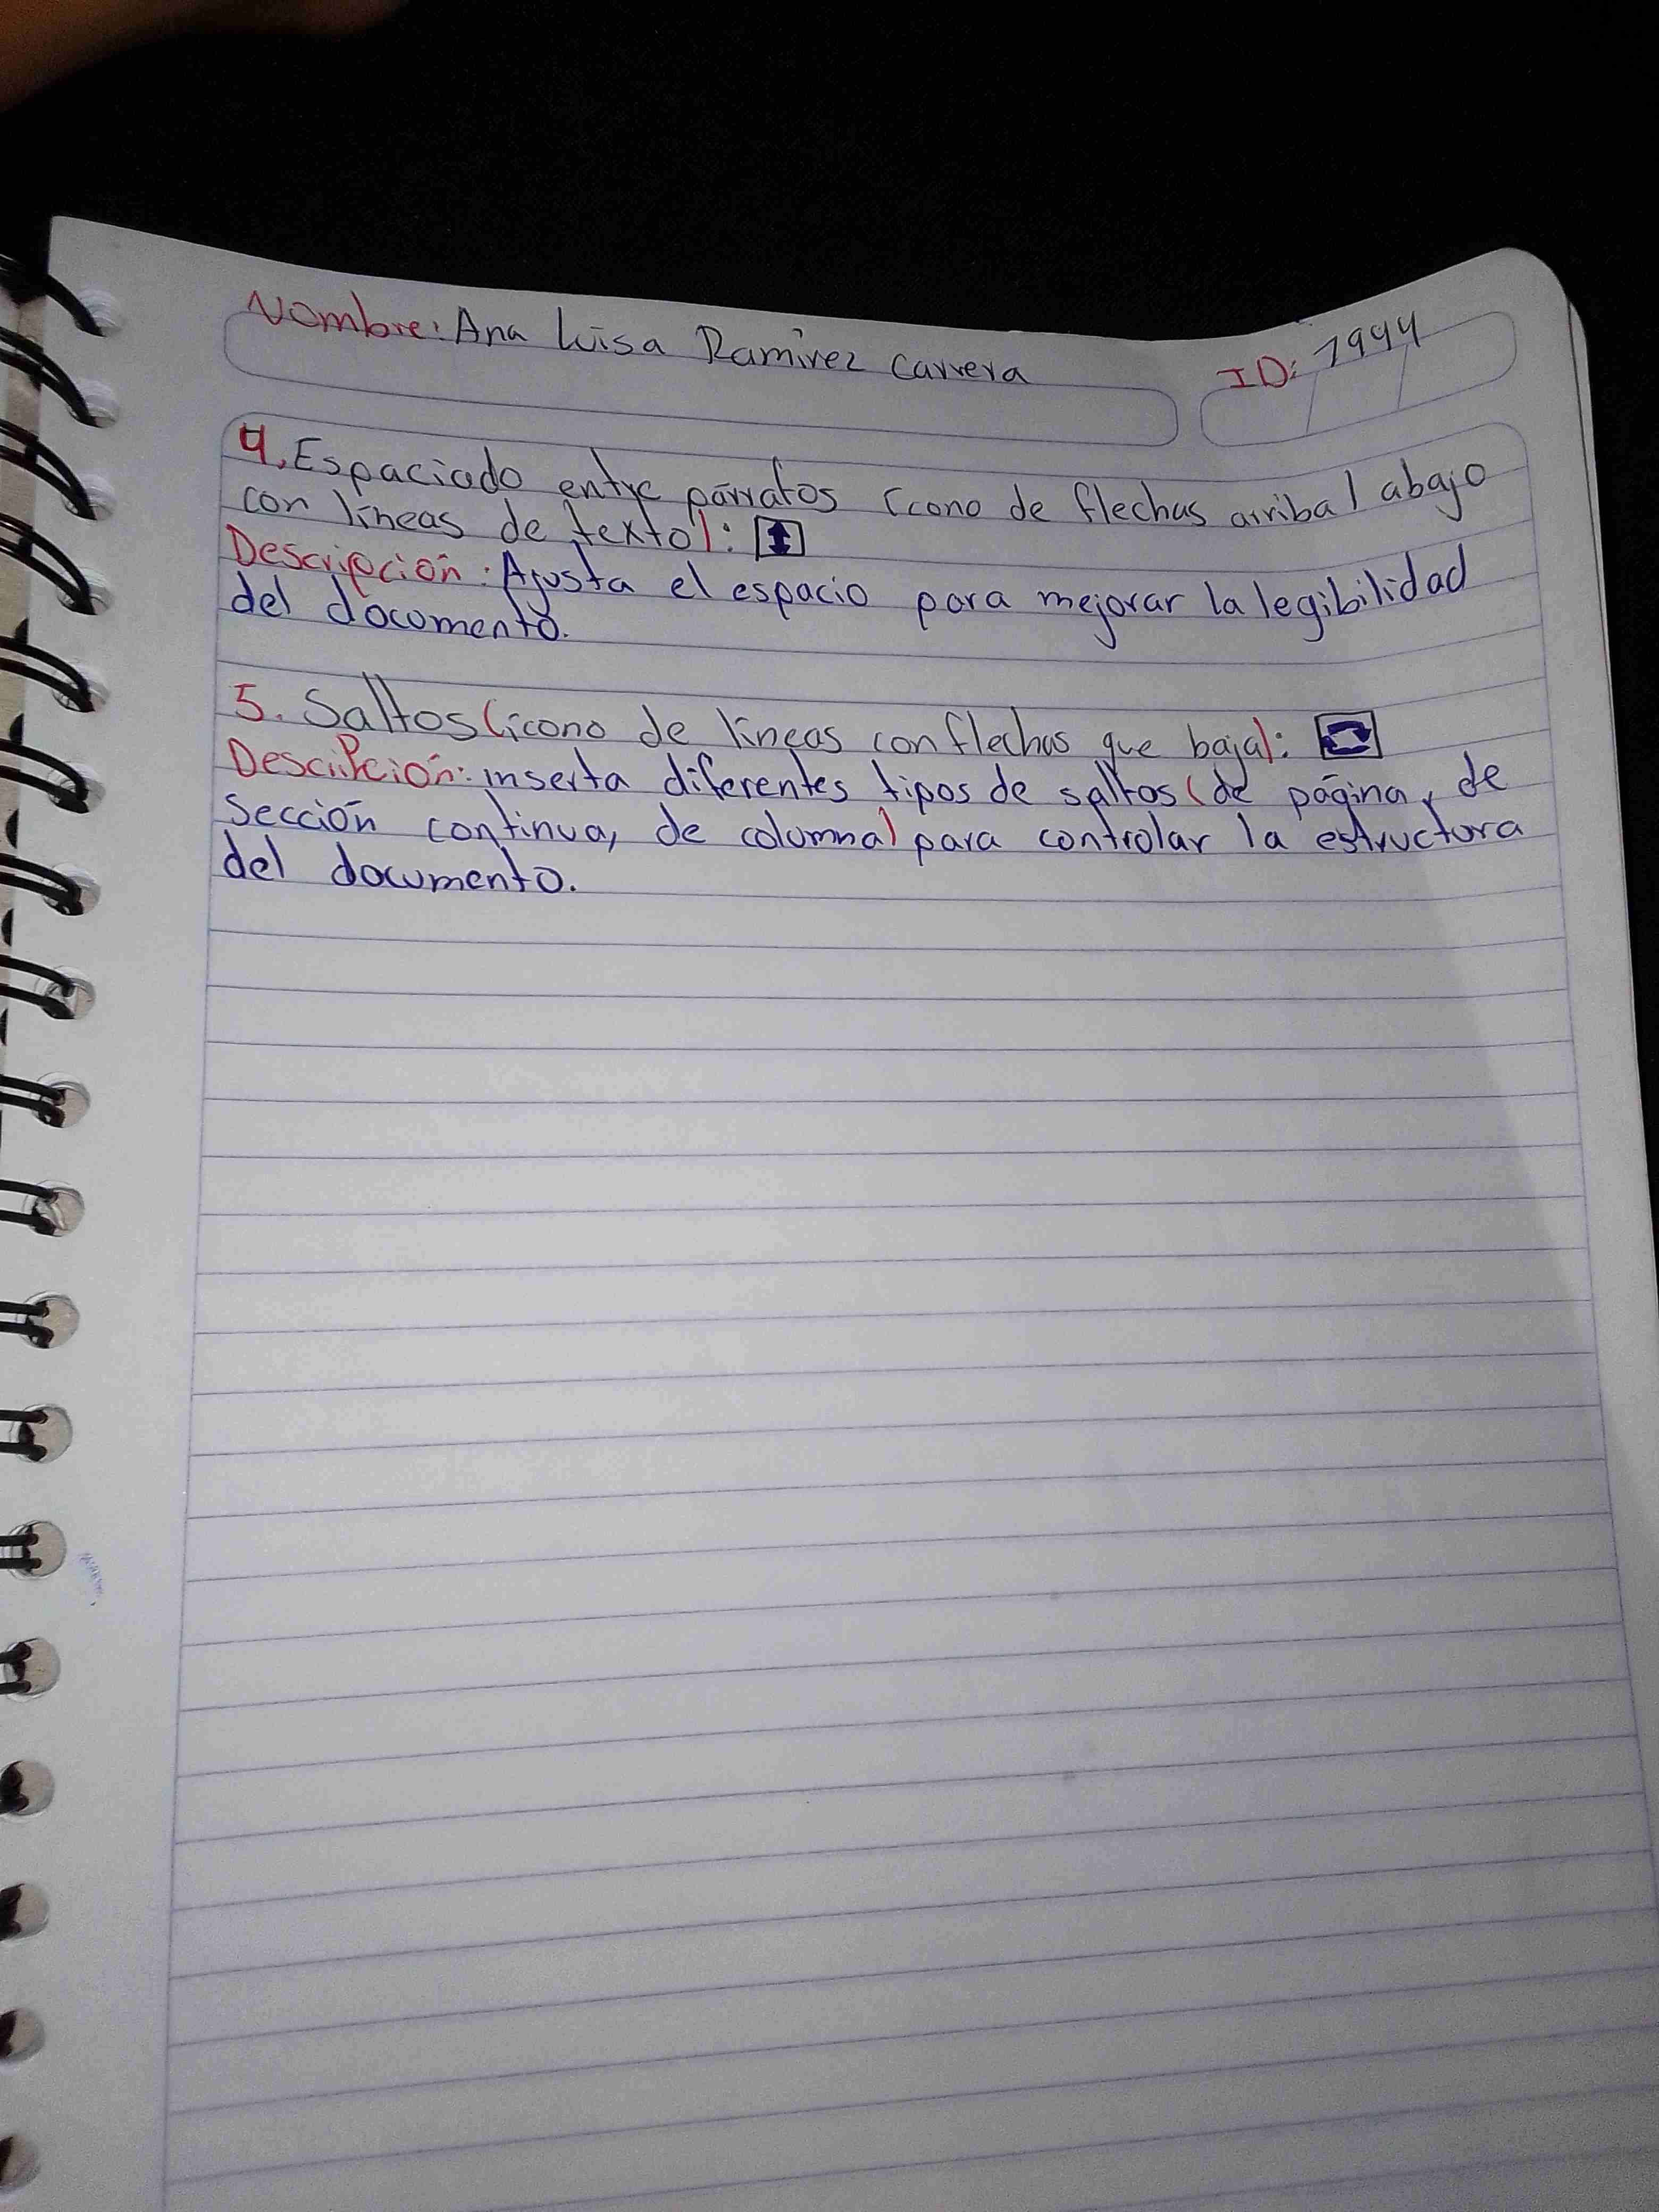 Nombre: Ana Luisa Ramirez Carrera
ID: 7944
4. Espaciado entre párrafos (icono de flechas arriba/abajo
con líneas de texto):
Descripción: Ajusta el espacio para mejorar la legibilidad
del documento.
5. Saltos (icono de líneas con flechas que baja):
Descripción: inserta diferentes tipos de saltos (de página, de
Sección continua, de columna) para controlar la estructura
del documento.